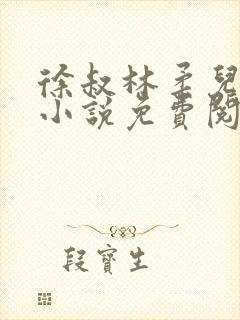 徐叔林柔兒
小說免費閱
段寶生